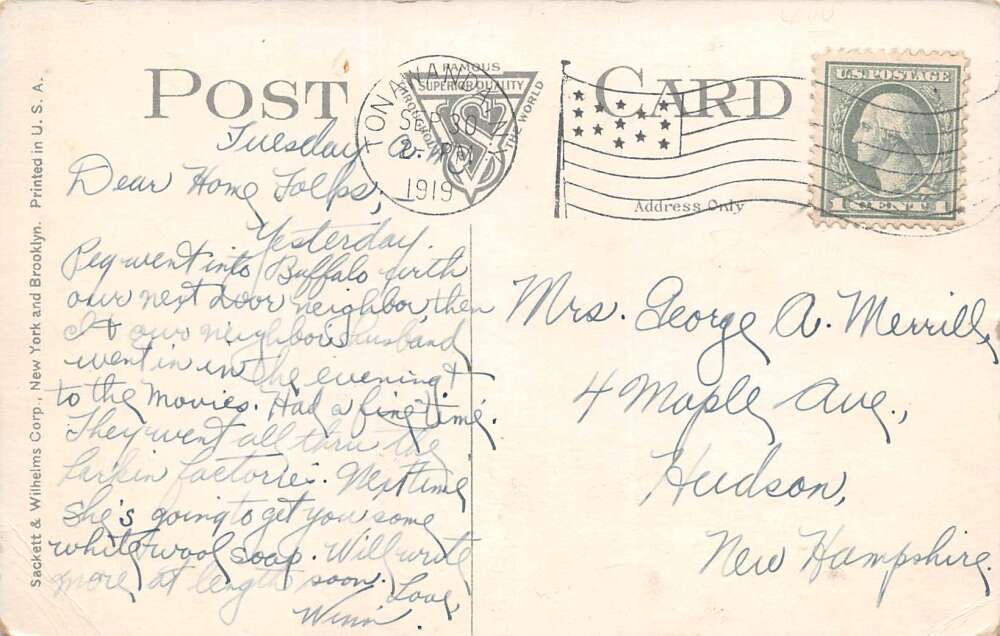 POST CARD
FAMOUS
SUPERIOR QUALITY
THROUGHOUT THE WORLD
TONAWANDA N.Y.
SEP 30
2- PM
1919
U.S. POSTAGE
1 CENT 1
Address Only
Sackett & Wilhelms Corp., New York and Brooklyn. Printed in U. S. A.
Tuesday A.M.
Dear Home Folks,
Yesterday
Peg went into Buffalo with
our next door neighbor, then
I & our neighbor's husband
went in in the evening &
to the movies. Had a fine time.
They went all thru the
Larkin factories. Next time
she's going to get you some
white wool soap. Will write
more at length soon. Love,
Winn.
Mrs. George A. Merrill,
4 Maple Ave.,
Hudson,
New Hampshire.